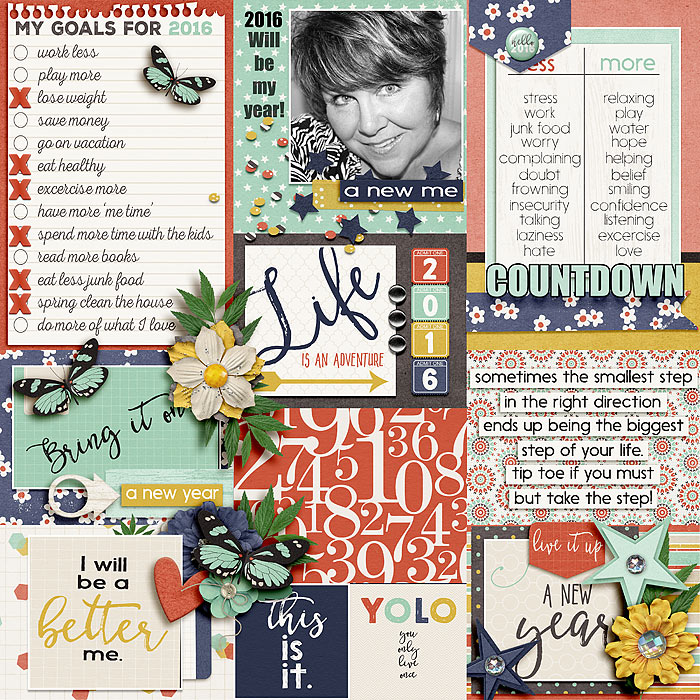 MY GOALS FOR 2016
work less
play more
lose weight
save money
go on vacation
eat healthy
excercise more
have more 'me time'
spend more time with the kids
read more books
eat less junk food
spring clean the house
do more of what I love
2016
Will
be my
year!
a new me
hello
2016
ess
more
stress
work
junk food
worry
complaining
doubt
frowning
insecurity
talking
laziness
hate
relaxing
play
water
hope
helping
belief
smiling
confidence
listening
excercise
love
COUNTDOWN
Life
IS AN ADVENTURE
ADMIT ONE
2
ADMIT ONE
0
ADMIT ONE
1
ADMIT ONE
6
Bring it on
a new year
sometimes the smallest step
in the right direction
ends up being the biggest
step of your life.
tip toe if you must
but take the step!
I will
be a
better
me.
this
is
it.
YOLO
you
only
live
once
live it up
A NEW
year